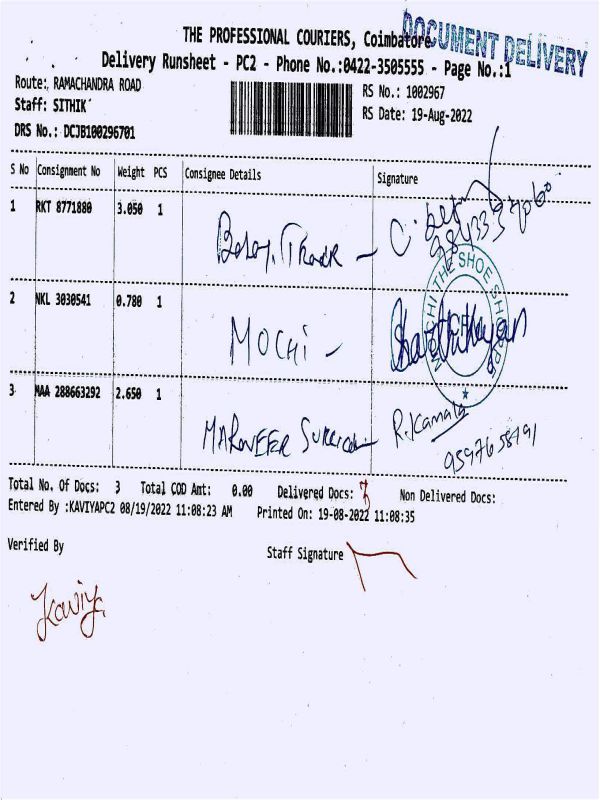 THE PROFESSIONAL COURIERS, Coimbatore
DOCUMENT DELIVERY
Delivery Runsheet - PC2 - Phone No.:0422-3505555 - Page No.:1
Route: RAMACHANDRA ROAD
Staff: SITHIK
DRS No.: DCJB100296701
RS No.: 1002967
RS Date: 19-Aug-2022
S No Consignment No Weight PCS Consignee Details Signature
1 RKT 8771880 3.050 1
2 NKL 3030541 0.780 1 MOCHI -
MOCHI THE SHOE SHOPPE
3 MAA 288663292 2.650 1 R. Kamala
9597658191
Total No. Of Docs: 3 Total COD Amt: 0.00 Delivered Docs: 3 Non Delivered Docs:
Entered By :KAVIYAPC2 08/19/2022 11:08:23 AM Printed On: 19-08-2022 11:08:35
Verified By Staff Signature
Kaviya